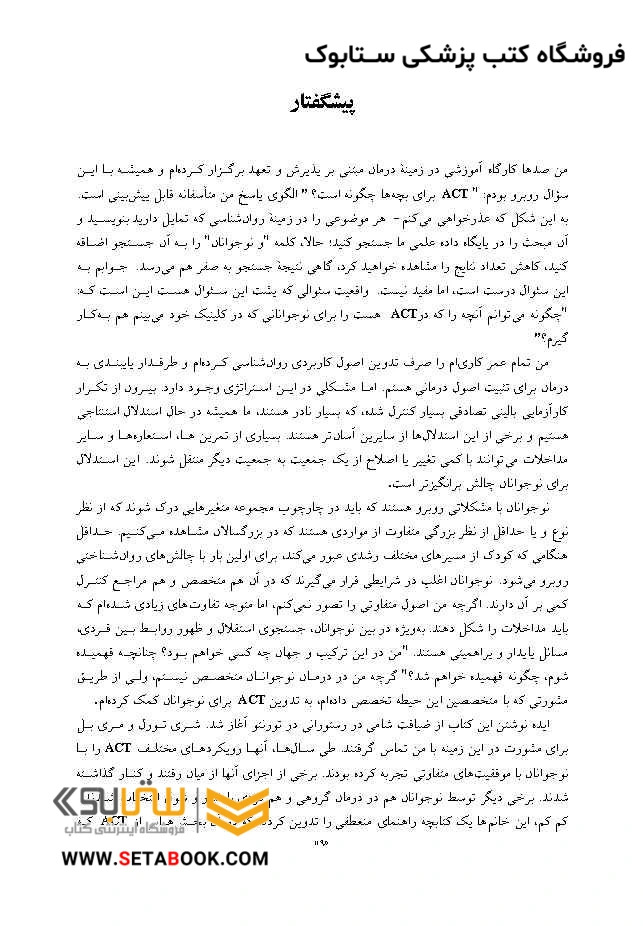 فروشگاه کتب پزشکی ستابوک
پیشگفتار
من صدها کارگاه آموزشی در زمینهٔ درمان مبتنی بر پذیرش و تعهد برگزار کرده‌ام و همیشه با این
سؤال روبرو بودم: " ACT برای بچه‌ها چگونه است؟ " الگوی پاسخ من متأسفانه قابل پیش‌بینی است.
به این شکل که عذرخواهی می‌کنم- هر موضوعی را در زمینهٔ روان‌شناسی که تمایل دارید بنویسید و
آن مبحث را در پایگاه داده علمی ما جستجو کنید؛ حالا، کلمه "و نوجوانان" را به آن جستجو اضافه
کنید، کاهش تعداد نتایج را مشاهده خواهید کرد، گاهی نتیجهٔ جستجو به صفر هم می‌رسد. جوابم به
این سئوال درست است، اما مفید نیست. واقعیت سئوالی که پشت این سئوال هست این است که:
"چگونه می‌توانم آنچه را که درACT هست را برای نوجوانانی که در کلینیک خود می‌بینم هم به‌کار
گیرم؟"
من تمام عمر کاری‌ام را صرف تدوین اصول کاربردی روان‌شناسی کرده‌ام و طرفدار پایبندی به
درمان برای تثبیت اصول درمانی هستم. اما مشکلی در این استراتژی وجود دارد. بیرون از تکرار
کارآزمایی بالینی تصادفی بسیار کنترل شده، که بسیار نادر هستند، ما همیشه در حال استدلال استنتاجی
هستیم و برخی از این استدلال‌ها از سایرین آسان‌تر هستند. بسیاری از تمرین ها، استعاره‌ها و سایر
مداخلات می‌توانند با کمی تغییر یا اصلاح از یک جمعیت به جمعیت دیگر منتقل شوند. این استدلال
برای نوجوانان چالش برانگیزتر است.
نوجوانان با مشکلاتی روبرو هستند که باید در چارچوب مجموعه متغیرهایی درک شوند که از نظر
نوع و یا حداقل از نظر بزرگی متفاوت از مواردی هستند که در بزرگسالان مشاهده می‌کنیم. حداقل
هنگامی که کودک از مسیرهای مختلف رشدی عبور می‌کند، برای اولین بار با چالش‌های روان‌شناختی
روبرو می‌شود. نوجوانان اغلب در شرایطی قرار می‌گیرند که در آن هم متخصص و هم مراجع کنترل
کمی بر آن دارند. اگرچه من اصول متفاوتی را تصور نمی‌کنم، اما متوجه تفاوت‌های زیادی شده‌ام که
باید مداخلات را شکل دهند. به‌ویژه در بین نوجوانان، جستجوی استقلال و ظهور روابط بین فردی،
مسائل پایدار و پراهمیتی هستند. "من در این ترکیب و جهان چه کسی خواهم بود؟ چنانچه فهمیده
شوم، چگونه فهمیده خواهم شد؟" گرچه من در درمان نوجوانان متخصص نیستم، ولی از طریق
مشورتی که با متخصصین این حیطه تخصص داده‌ام، به تدوین ACT برای نوجوانان کمک کرده‌ام.
ایده نوشتن این کتاب از ضیافت شامی در رستورانی در تورنتو آغاز شد. شری تورل و مری بل
برای مشورت در این زمینه با من تماس گرفتند. طی سال‌ها، آنها رویکردهای مختلف ACT را با
نوجوانان با موفقیت‌های متفاوتی تجربه کرده بودند. برخی از اجزای آنها از میان رفتند و کنار گذاشته
شدند. برخی دیگر توسط نوجوانان هم در درمان گروهی و هم
کم کم، این خانم‌ها یک کتابچه راهنمای منعطفی را تدوین کردند ACT
ستابوک
فروشگاه اینترنتی کتاب
WWW.SETABOOK.COM